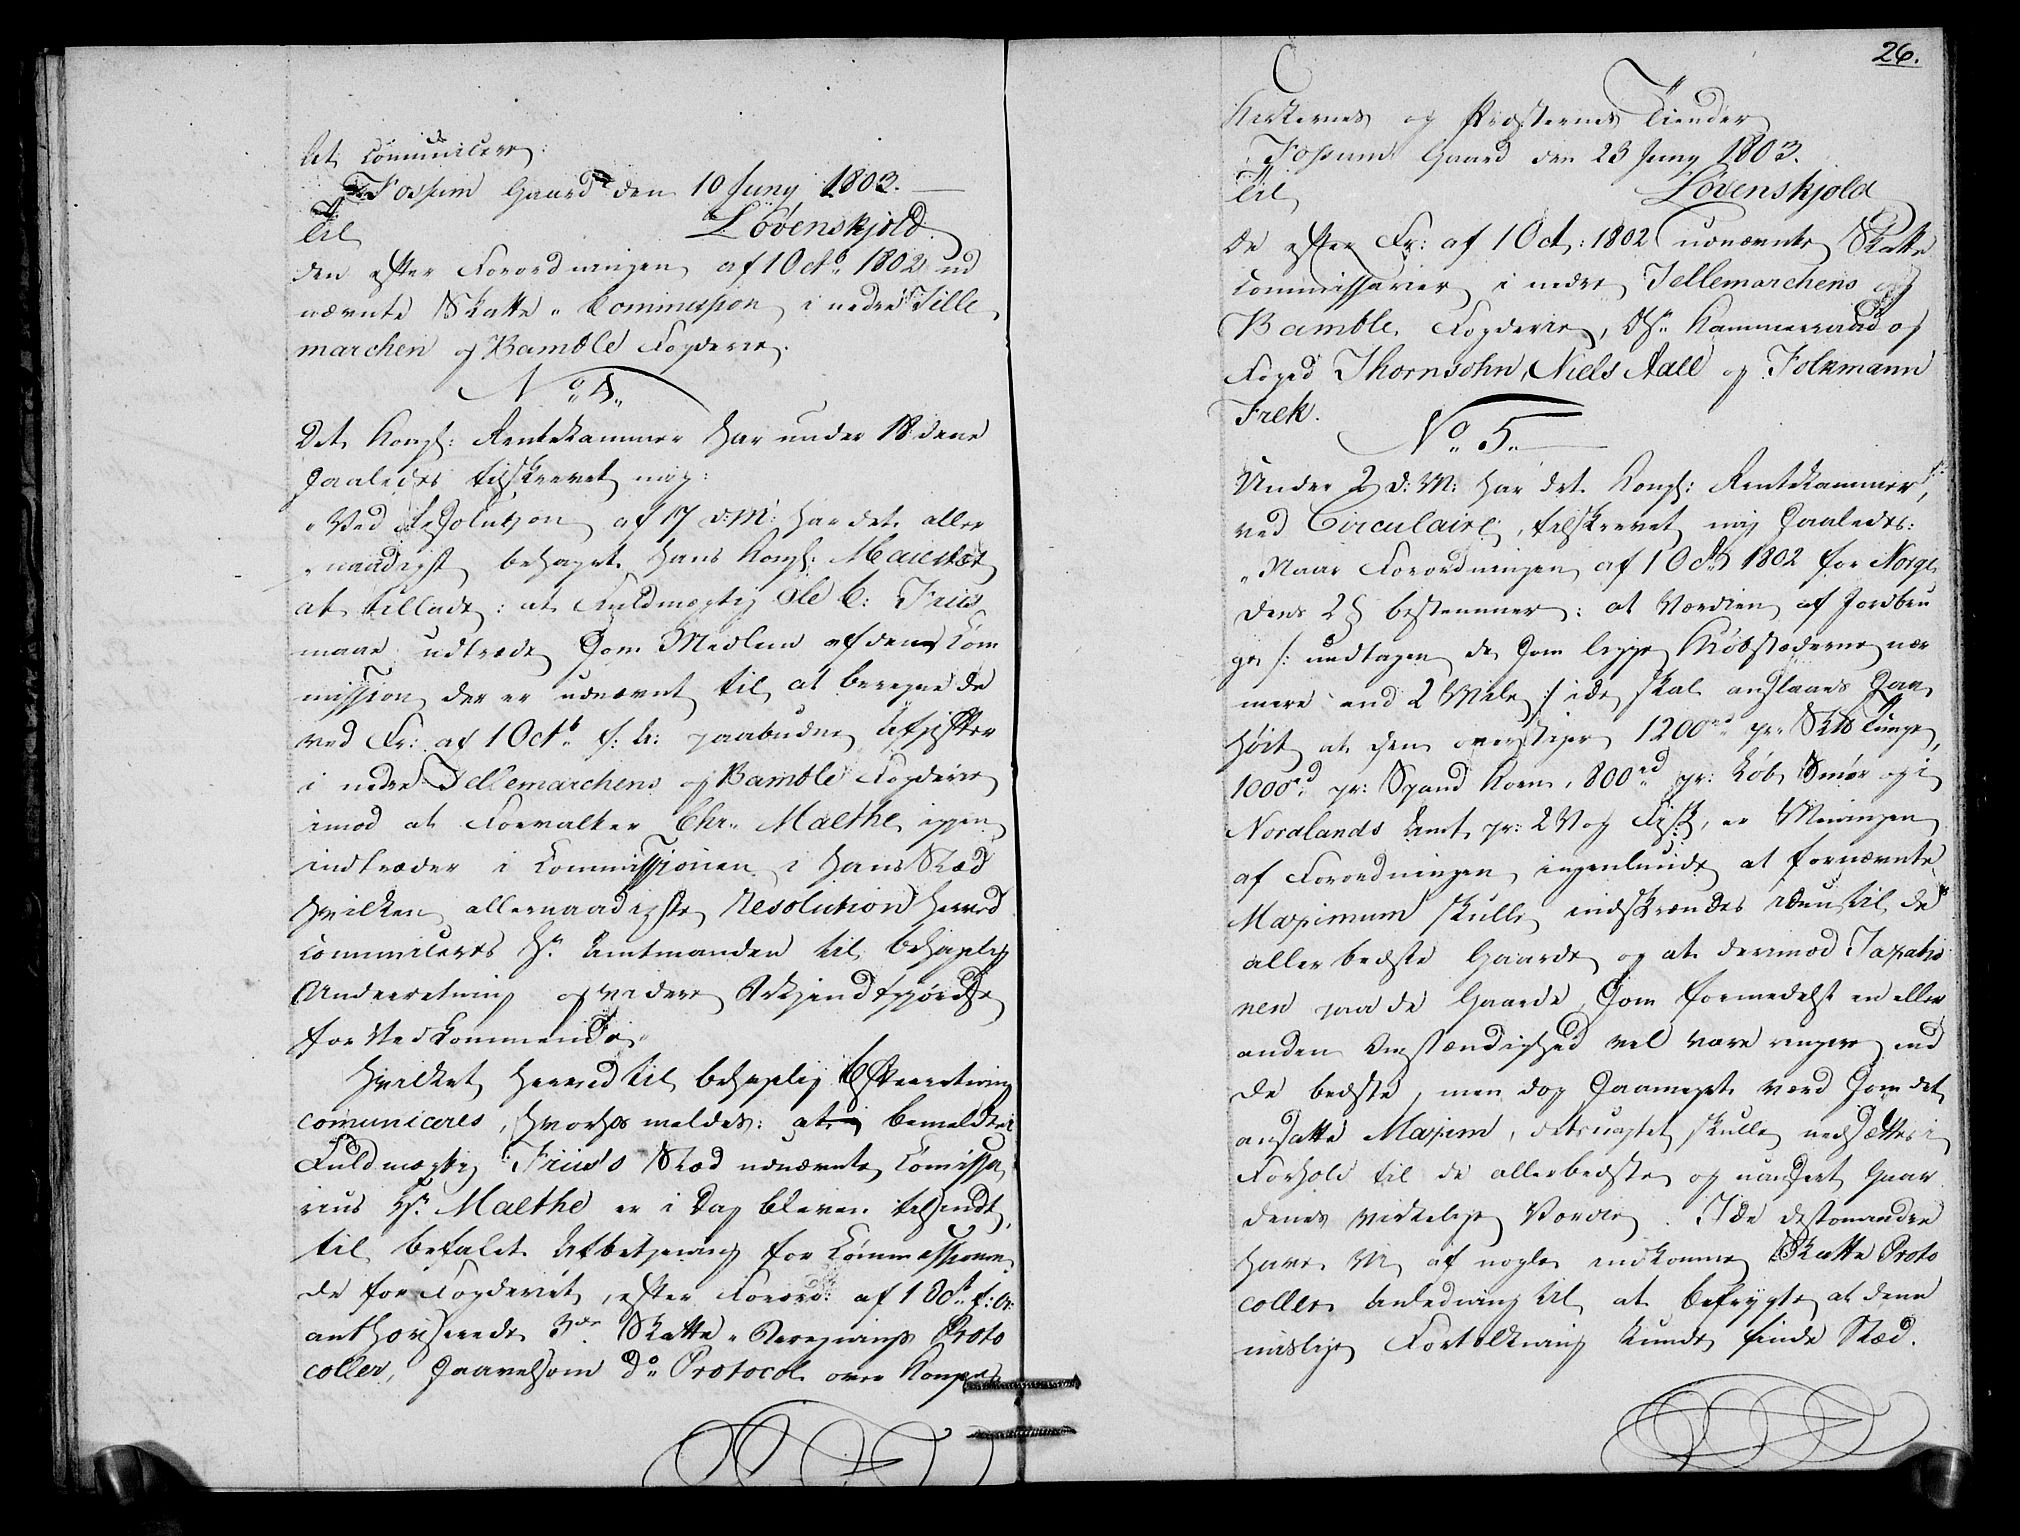 let Comunicere.
Fossum Gaard den 10 Juny 1803.
Til
Lövenskjold.
den efter Forordningen af 1 Octb. 1802 ud
nævnte Skatte-Commission i nedre Telle
marchen og Bamble Fogderie.
No. 4.
Det Kongl: Rentekammer har under 18 dene
saaledes tilskrevet mig:
"Ved Resolution af 17 d: M: har det aller
"naadigst behaget Hans Kongl: Maiestæt
at tillade: at Fuldmægtig Ole C: Friis
maae udtræde som Medlem af den Com
mission der er udnævnt til at beregne de
ved Fr: af 1 Octb. f: A: paabudne Afgifter
i nedre Tellemarchens og Bamble Fogderie
imod at Forvalter Chr. Maethe igjen
indtræder i Commissionen i hans Stæd
hvilken allernaadigste Resolution herved
communiceres Hr. Amtmanden til behagelig
Underretning og videre Bekjendtgjørelse
for Vedkommende."
Hvilket herved til behagelig Efterretning
comuniceres, hvorhos meldes: at bemeldte
Fuldmægtig Friis's Stæd udnævnte Comissa
rius Hr. Maethe er i Dag bleven tilsendt,
til befalet Afbetjening for Commissionen
de for Fogderiet, efter Forord: af 1 Octb. f: A:
authoriserede 3de Skatte-Beregnings Proto
coller, saavelsom do Protocol over Konges
26.
Kirkernes og Præsternes Tiender
Fossum Gaard den 23 Juny 1803.
Til
Lövenskjold
De efter Fr: af 1 Oct: 1802 udnævnte Skatte
Commissarier i nedre Tellemarchens og
Bamble Fogderie, Hr. Kammerraad og
Foged Thornsohn, Niels Aall og Folkmann
Frek.
No. 5.
Under 2 d: M: har det Kongl: Rentekammer,
ved Circulaire, tilskrevet mig saaledes:
"Naar Forordningen af 1 Octb. 1802 for Norge
dens 2 § bestemmer: at Værdien af Jordbru
ge /: undtagen de som ligge Kiøbstæderne nær
mere end 2 Mile :/ ikke skal anslaaes saa
høit at den overstiger 1200 rd pr. Skd Tunge,
1000 rd. pr: Spand Korn, 800 rd pr: Løb Smør og i
Nordlands Amt pr: 2 Vog Fisk, er Meningen
af Forordningen ingenlunde at fornævnte
Maximum skulle indskrændes ene til de
allerbedste Gaarde og at derimod Taxatio
nen paa de Gaarde, som formedelst en eller
anden Omstændighed vel være ringere end
de bedste, men dog saameget værd som det
ansatte Maxim, desuagtet skulle nedsættes i
Forhold til de allerbedste og uanseet Gaar
denes virkelige Værdie. Ikke destomindre
have Vi af nogle indkomne Skatte Proto
coller Anledning til at befrygte at denne
urislige Fortolkning kunde finde Stæd.